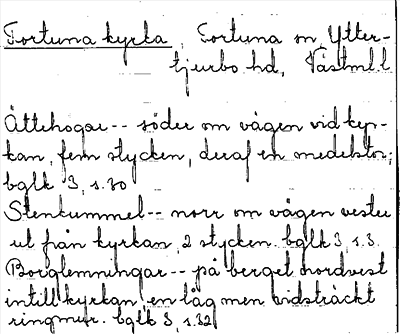 Tortuna kyrka, Tortuna sn, Ytter-
tjurbo hd, Västml l
Ättehogar -- söder om vägen vid kyr-
kan, fem stycken, deraf en med
bglk 3, s. 30
Stenkummel -- norr om vägen vester
ut från kyrkan, 2 stycken. bglk 3, s. 3.
Borglemningar -- på berget nordvest
intill kyrkan, en låg men vidsträckt
ringmur. bglk 3, s. 32